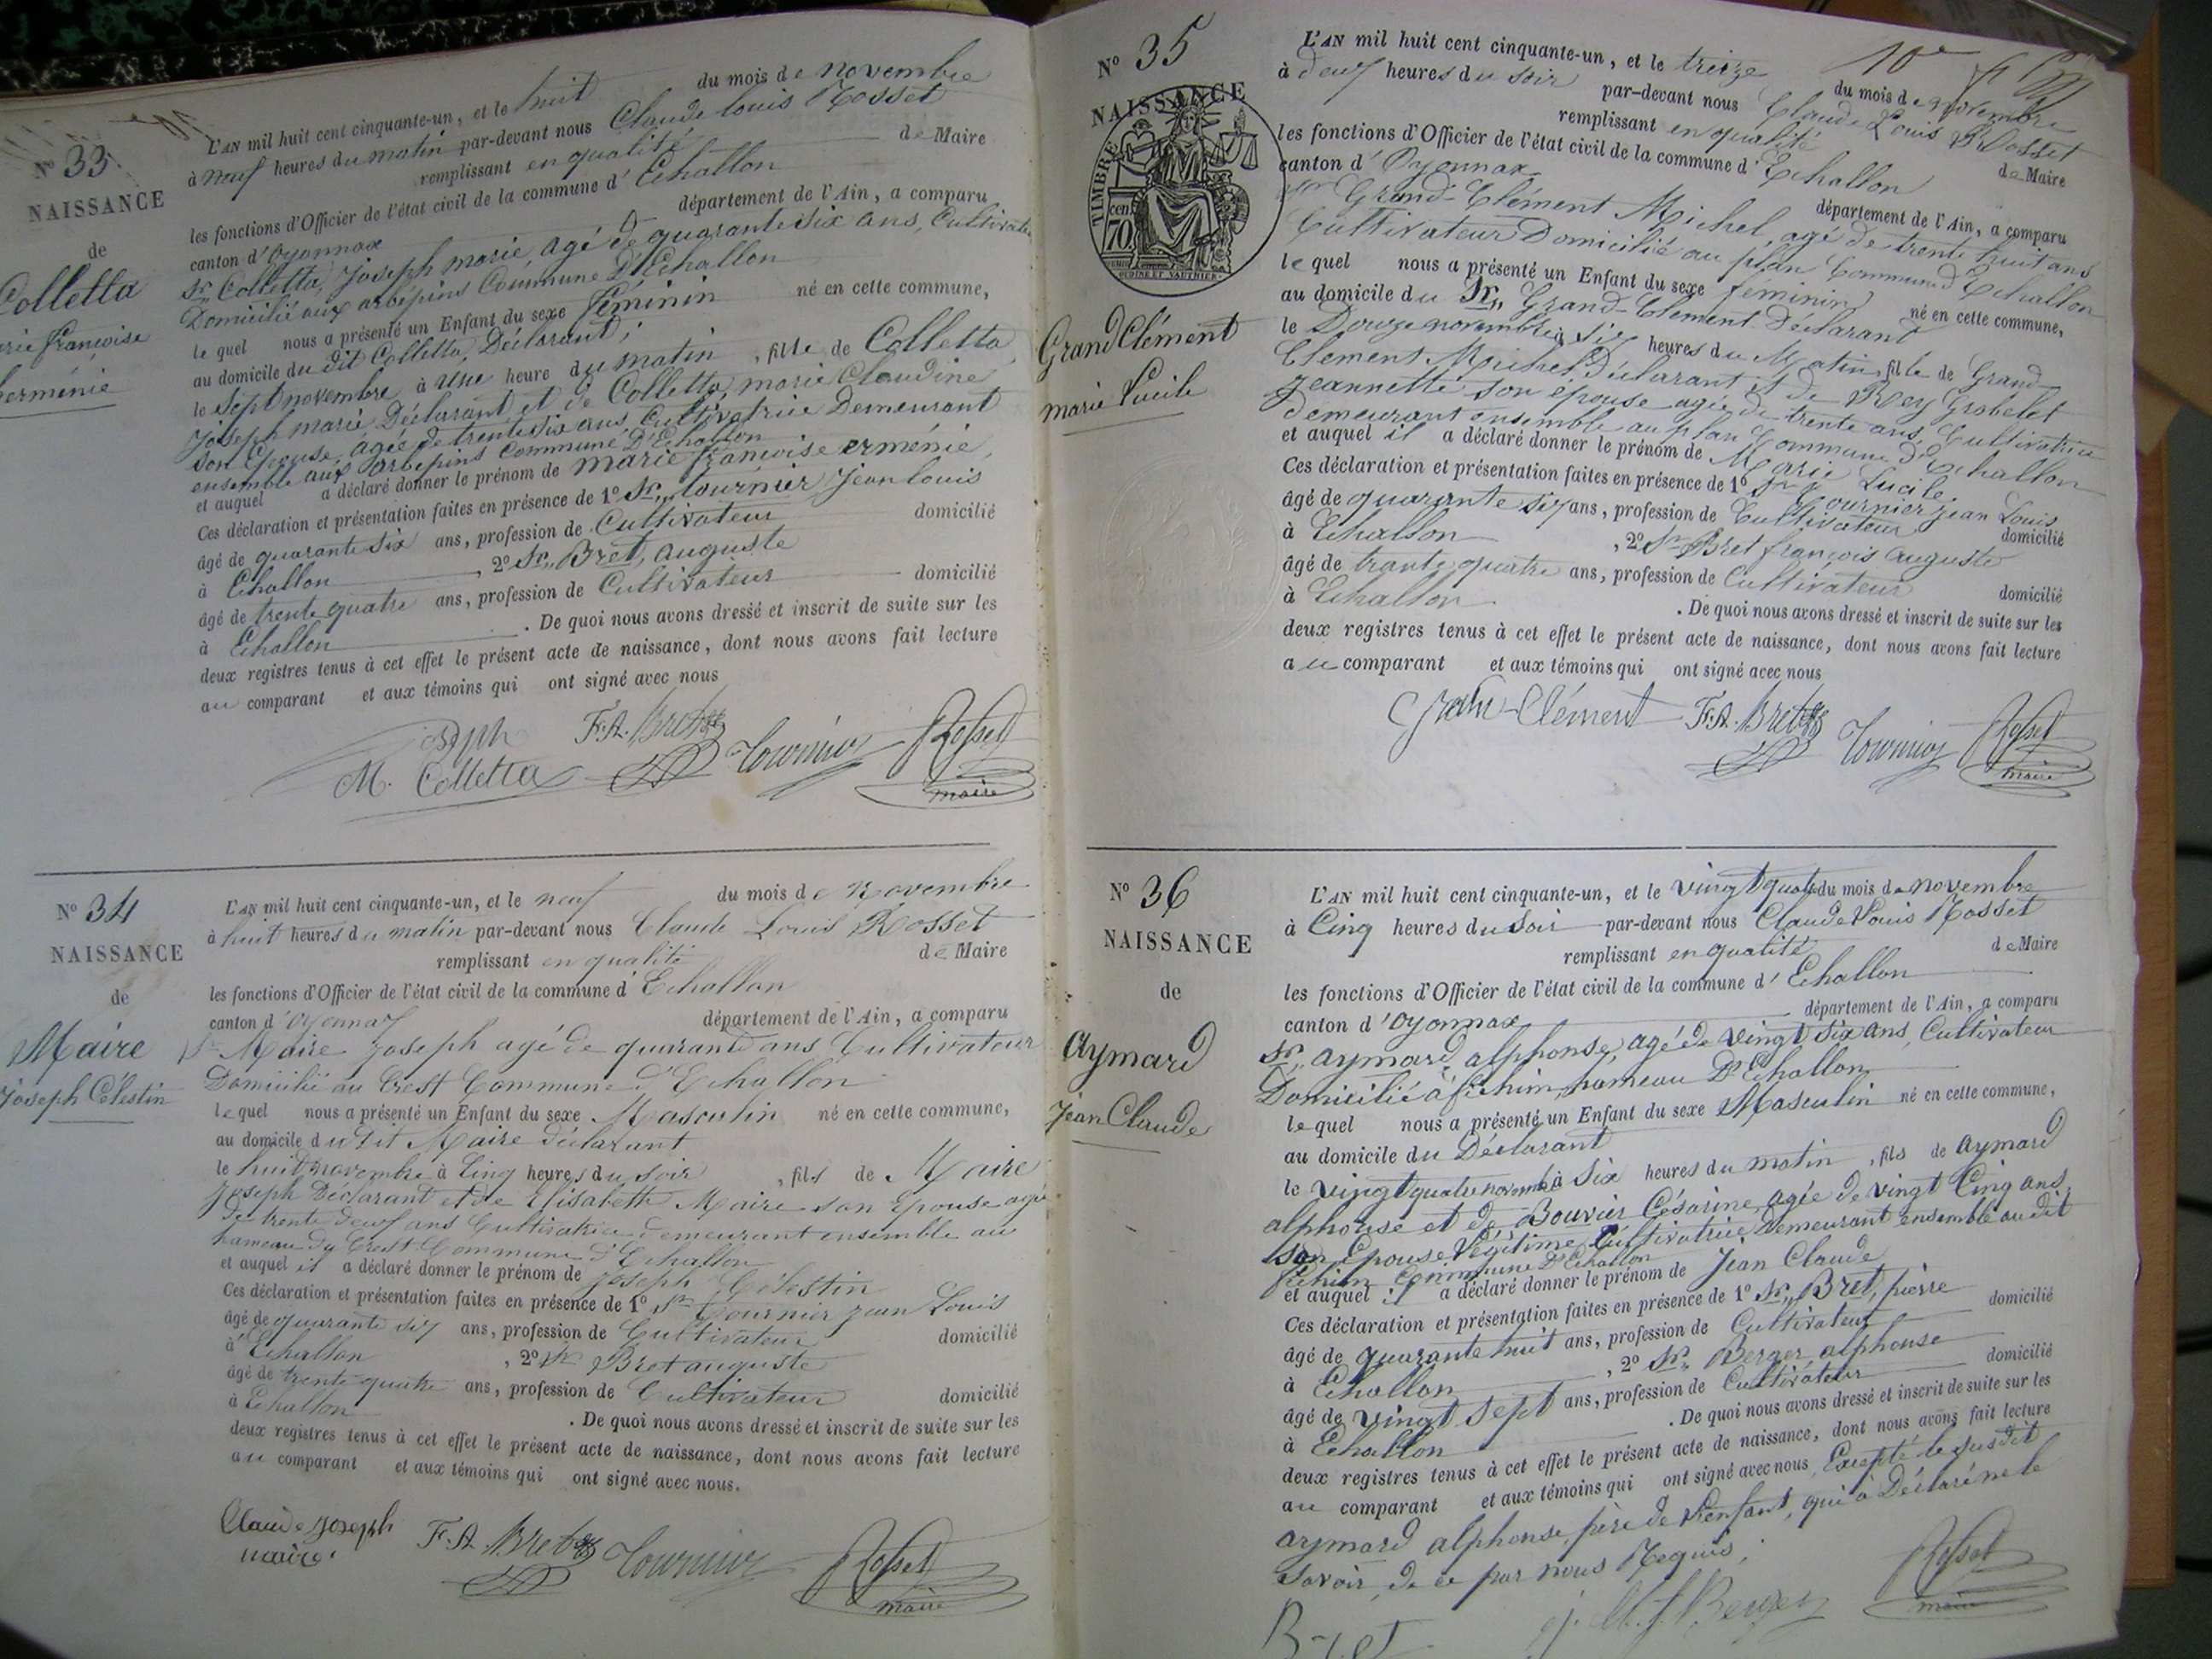 N° 33
NAISSANCE
de
Colletta
Françoise
L'AN mil huit cent cinquante-un, et le huit du mois de novembre
à neuf heures du matin par-devant nous Claude Louis Rosset
remplissant en qualité de Maire
les fonctions d'Officier de l'état civil de la commune d'Echallon
canton d'Oyonnax département de l'Ain, a comparu
Sr Colletta, Joseph marie, agé de quarante six ans, Cultivateur
Domicilié aux arbépins Commune D'Echallon
lequel nous a présenté un Enfant du sexe féminin né en cette commune,
au domicile du dit Colletta, Déclarant;
le Sept novembre à une heure du matin, fille de Colletta,
Joseph marie Déclarant et de Colletta, marie Claudine
son Epouse, agée de trente six ans, Cultivatrice Demeurant
ensemble aux arbepins Commune D'Echallon
et auquel a déclaré donner le prénom de marie françoise erménie,
Ces déclaration et présentation faites en présence de 1° Sr tournier, Jean louis
âgé de quarante six ans, profession de Cultivateur domicilié
à Echallon, 2° Sr Bret, auguste
âgé de trente quatre ans, profession de Cultivateur domicilié
à Echallon. De quoi nous avons dressé et inscrit de suite sur les
deux registres tenus à cet effet le présent acte de naissance, dont nous avons fait lecture
au comparant et aux témoins qui ont signé avec nous
M. Colletta F.A. Bret Tournier Rosset
maire
N° 34
NAISSANCE
de
Maire
Joseph Célestin
L'AN mil huit cent cinquante-un, et le neuf du mois de Novembre
à huit heures du matin par-devant nous Claude Louis Rosset
remplissant en qualité de Maire
les fonctions d'Officier de l'état civil de la commune d'Echallon
canton d'Oyonnax département de l'Ain, a comparu
Sr Maire Joseph agé de quarante ans Cultivateur
Domicilié au Crest Commune d'Echallon
lequel nous a présenté un Enfant du sexe Masculin né en cette commune,
au domicile du dit Maire déclarant
le huit novembre à Cinq heures du soir, fils de Maire
Joseph Déclarant et de Elisabeth Maire son Epouse agée
de trente deux ans Cultivatrice demeurant ensemble au
hameau du Crest Commune d'Echallon
et auquel il a déclaré donner le prénom de Joseph Célestin
Ces déclaration et présentation faites en présence de 1° Sr Tournier Jean Louis
âgé de quarante six ans, profession de Cultivateur domicilié
à Echallon, 2° Sr Bret auguste
âgé de trente quatre ans, profession de Cultivateur domicilié
à Echallon. De quoi nous avons dressé et inscrit de suite sur les
deux registres tenus à cet effet le présent acte de naissance, dont nous avons fait lecture
au comparant et aux témoins qui ont signé avec nous.
Claude Joseph
maire F.A. Bret Tournier Rosset
maire
N° 35
NAISSANCE
TIMBRE
cen.
70
Grand Clément
marie Lucile
10e
L'AN mil huit cent cinquante-un, et le treize du mois de novembre
à deux heures du soir par-devant nous Claude Louis Rosset
remplissant en qualité de Maire
les fonctions d'Officier de l'état civil de la commune d'Echallon
canton d'Oyonnax département de l'Ain, a comparu
Sr Grand-Clément Michel, agé de trente huit ans
Cultivateur Domicilié au plan Commune d'Echallon
lequel nous a présenté un Enfant du sexe féminin né en cette commune,
au domicile du Sr Grand-Clément Déclarant
le Douze novembre à six heures du Matin, fille de Grand-
Clément Michel Déclarant et de Rey Grobelet
Jeannette son épouse agée de trente ans, Cultivatrice
demeurant ensemble au plan Commune d'Echallon
et auquel il a déclaré donner le prénom de Marie Lucile
Ces déclaration et présentation faites en présence de 1° Sr Tournier Jean Louis
âgé de quarante six ans, profession de Cultivateur domicilié
à Echallon, 2° Sr Bret françois auguste
âgé de trante quatre ans, profession de Cultivateur domicilié
à Echallon. De quoi nous avons dressé et inscrit de suite sur les
deux registres tenus à cet effet le présent acte de naissance, dont nous avons fait lecture
au comparant et aux témoins qui ont signé avec nous
Clément F.A. Bret Tournier Rosset
maire
N° 36
NAISSANCE
de
Aymard
Jean Claude
L'AN mil huit cent cinquante-un, et le vingt quatre du mois de novembre
à Cinq heures du Soir par-devant nous Claude Louis Rosset
remplissant en qualité de Maire
les fonctions d'Officier de l'état civil de la commune d'Echallon
canton d'Oyonnax département de l'Ain, a comparu
Sr aymard, alphonse, agé de vingt six ans, Cultivateur
Domicilié à hameau D'Echallon
lequel nous a présenté un Enfant du sexe Masculin né en cette commune,
au domicile du Déclarant
le vingt quatre novembre à Six heures du matin, fils de aymard
alphonse et de Bouvier Césarine, agée de vingt Cinq ans,
son Epouse Légitime, Cultivatrice, Demeurant ensemble au dit
Commune D'Echallon
et auquel il a déclaré donner le prénom de Jean Claude
Ces déclaration et présentation faites en présence de 1° Sr Bret, pierre
âgé de quarante huit ans, profession de Cultivateur domicilié
à Echallon, 2° Sr Berger alphonse
âgé de vingt sept ans, profession de Cultivateur domicilié
à Echallon. De quoi nous avons dressé et inscrit de suite sur les
deux registres tenus à cet effet le présent acte de naissance, dont nous avons fait lecture
au comparant et aux témoins qui ont signé avec nous, Excepté le susdit
aymard alphonse, père de l'enfant, qui a Déclaré ne le
savoir, de ce par nous Requis;
Bret Berger Rosset
maire